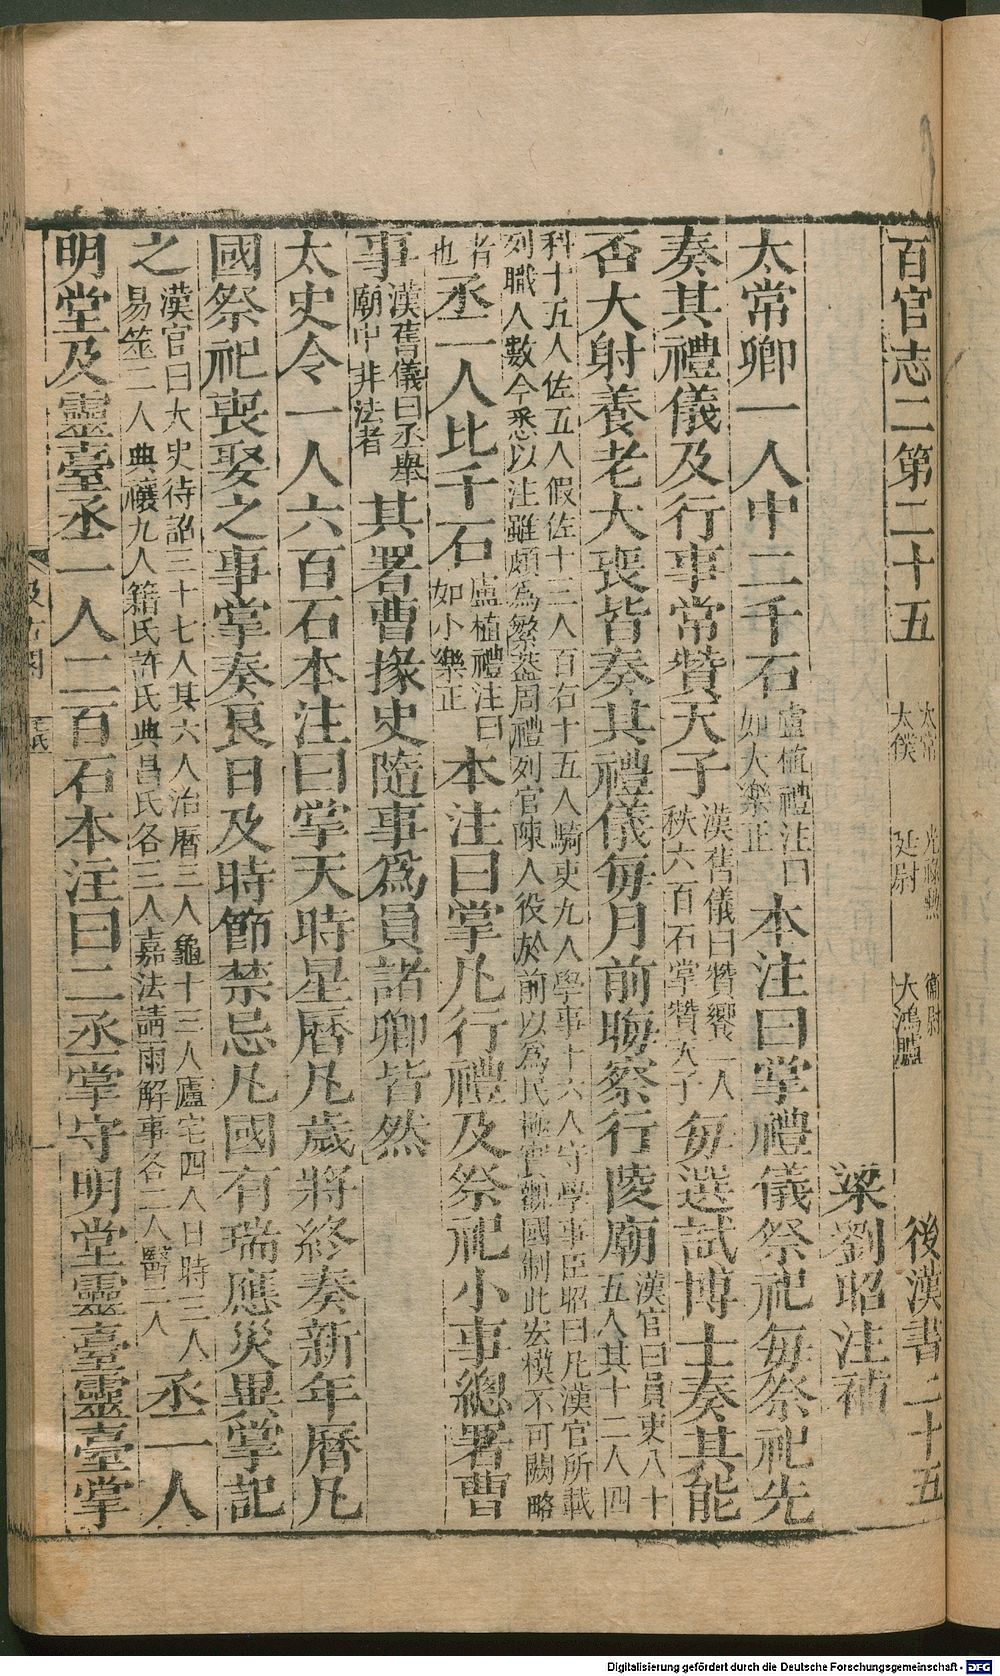 百官志二第二十五 太常 光祿勳 衞尉 太僕 廷尉 大鴻臚 後漢書二十五
梁劉昭注補
太常卿一人中二千石盧植禮注曰如大樂正本注曰掌禮儀祭祀每祭祀先
奏其禮儀及行事常贊天子漢舊儀曰贊饗一人秩六百石掌贊天子每選試博士奏其能
否大射養老大喪皆奏其禮儀每月前晦察行陵廟漢官曰員吏八十五人其十二人四
科十五人佐五人假佐十三人百石十五人騎吏九人學事十六人守學事臣昭曰凡漢官所載
列職人數今悉以注雖頗為繁蓋周禮列官陳人役於前以為民極寔觀國制此宏模不可闕略
者也丞一人比千石盧植禮注曰如小樂正本注曰掌凡行禮及祭祀小事總署曹
事漢舊儀曰丞舉廟中非法者其署曹掾史隨事爲員諸卿皆然
太史令一人六百石本注曰掌天時星曆凡歲將終奏新年曆凡
國祭祀喪娶之事掌奏良日及時節禁忌凡國有瑞應災異掌記
之漢官曰太史待詔三十七人其六人治曆三人龜十三人廬宅四人日時三人易筮二人典禳九人籍氏許氏典昌氏各三人嘉法請雨解事各二人醫二人丞一人
明堂及靈臺丞一人二百石本注曰二丞掌守明堂靈臺靈臺掌
Digitalisierung gefördert durch die Deutsche Forschungsgemeinschaft - DFG